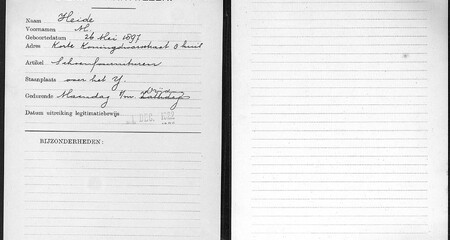 Naam Heide
Voornamen M.
Geboortedatum 26 Mei 1897
Adres Korte Koningsdwarsstraat 3 huis
Artikel Schoenfournituren
Staanplaats over het Y.
Gedurende Maandag t/m Vrijdag
Datum uitreiking legitimatiebewijs DEC.
BIJZONDERHEDEN: